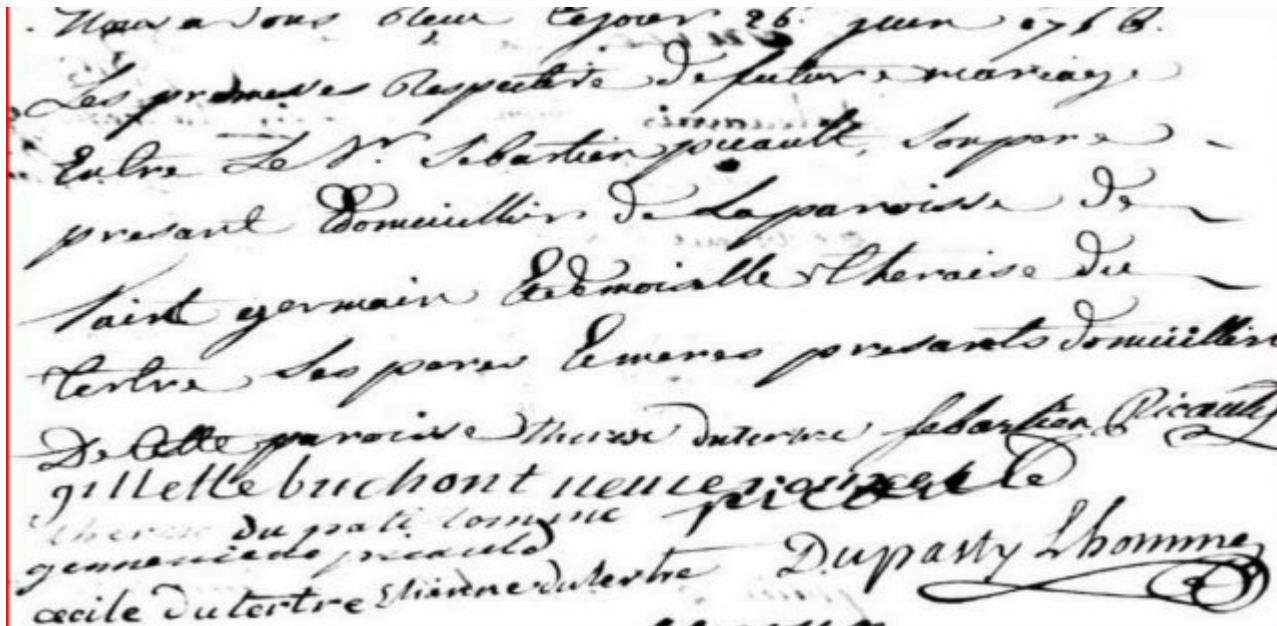 Nous avons Reçu Cejour 26. juin 1766.
Les promesses Respective de future mariage
Entre Le Sr. Sebastien picault, Son pere
presant Domicillier de La paroisse de
Saint germain Et demoiselle theraise du
tertre Ses peres Et meres presants domicillier
De Cette paroisse therese dutertre Sebastien Picault
gillette buchont veuve picault
therese du pati lomme
gennevieve picault
cecile Dutertre Etienne dutertre Dupasty Lhomme